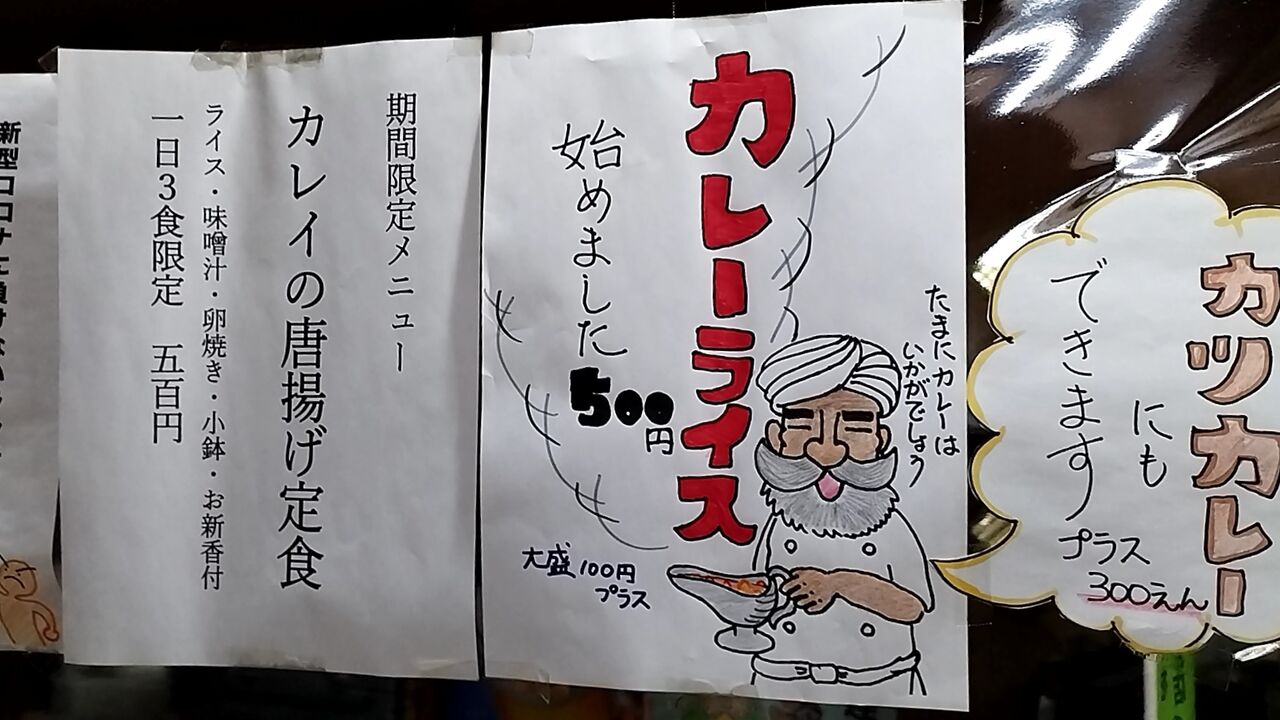 カツカレー
にも
できます
プラス
300えん
カレーライス
始めました
500
円
たまにカレーは
いかがでしょう
大盛100円
プラス
期間限定メニュー
カレイの唐揚げ定食
ライス・味噌汁・卵焼き・小鉢・お新香付
一日3食限定 五百円
新型コロナに負けない